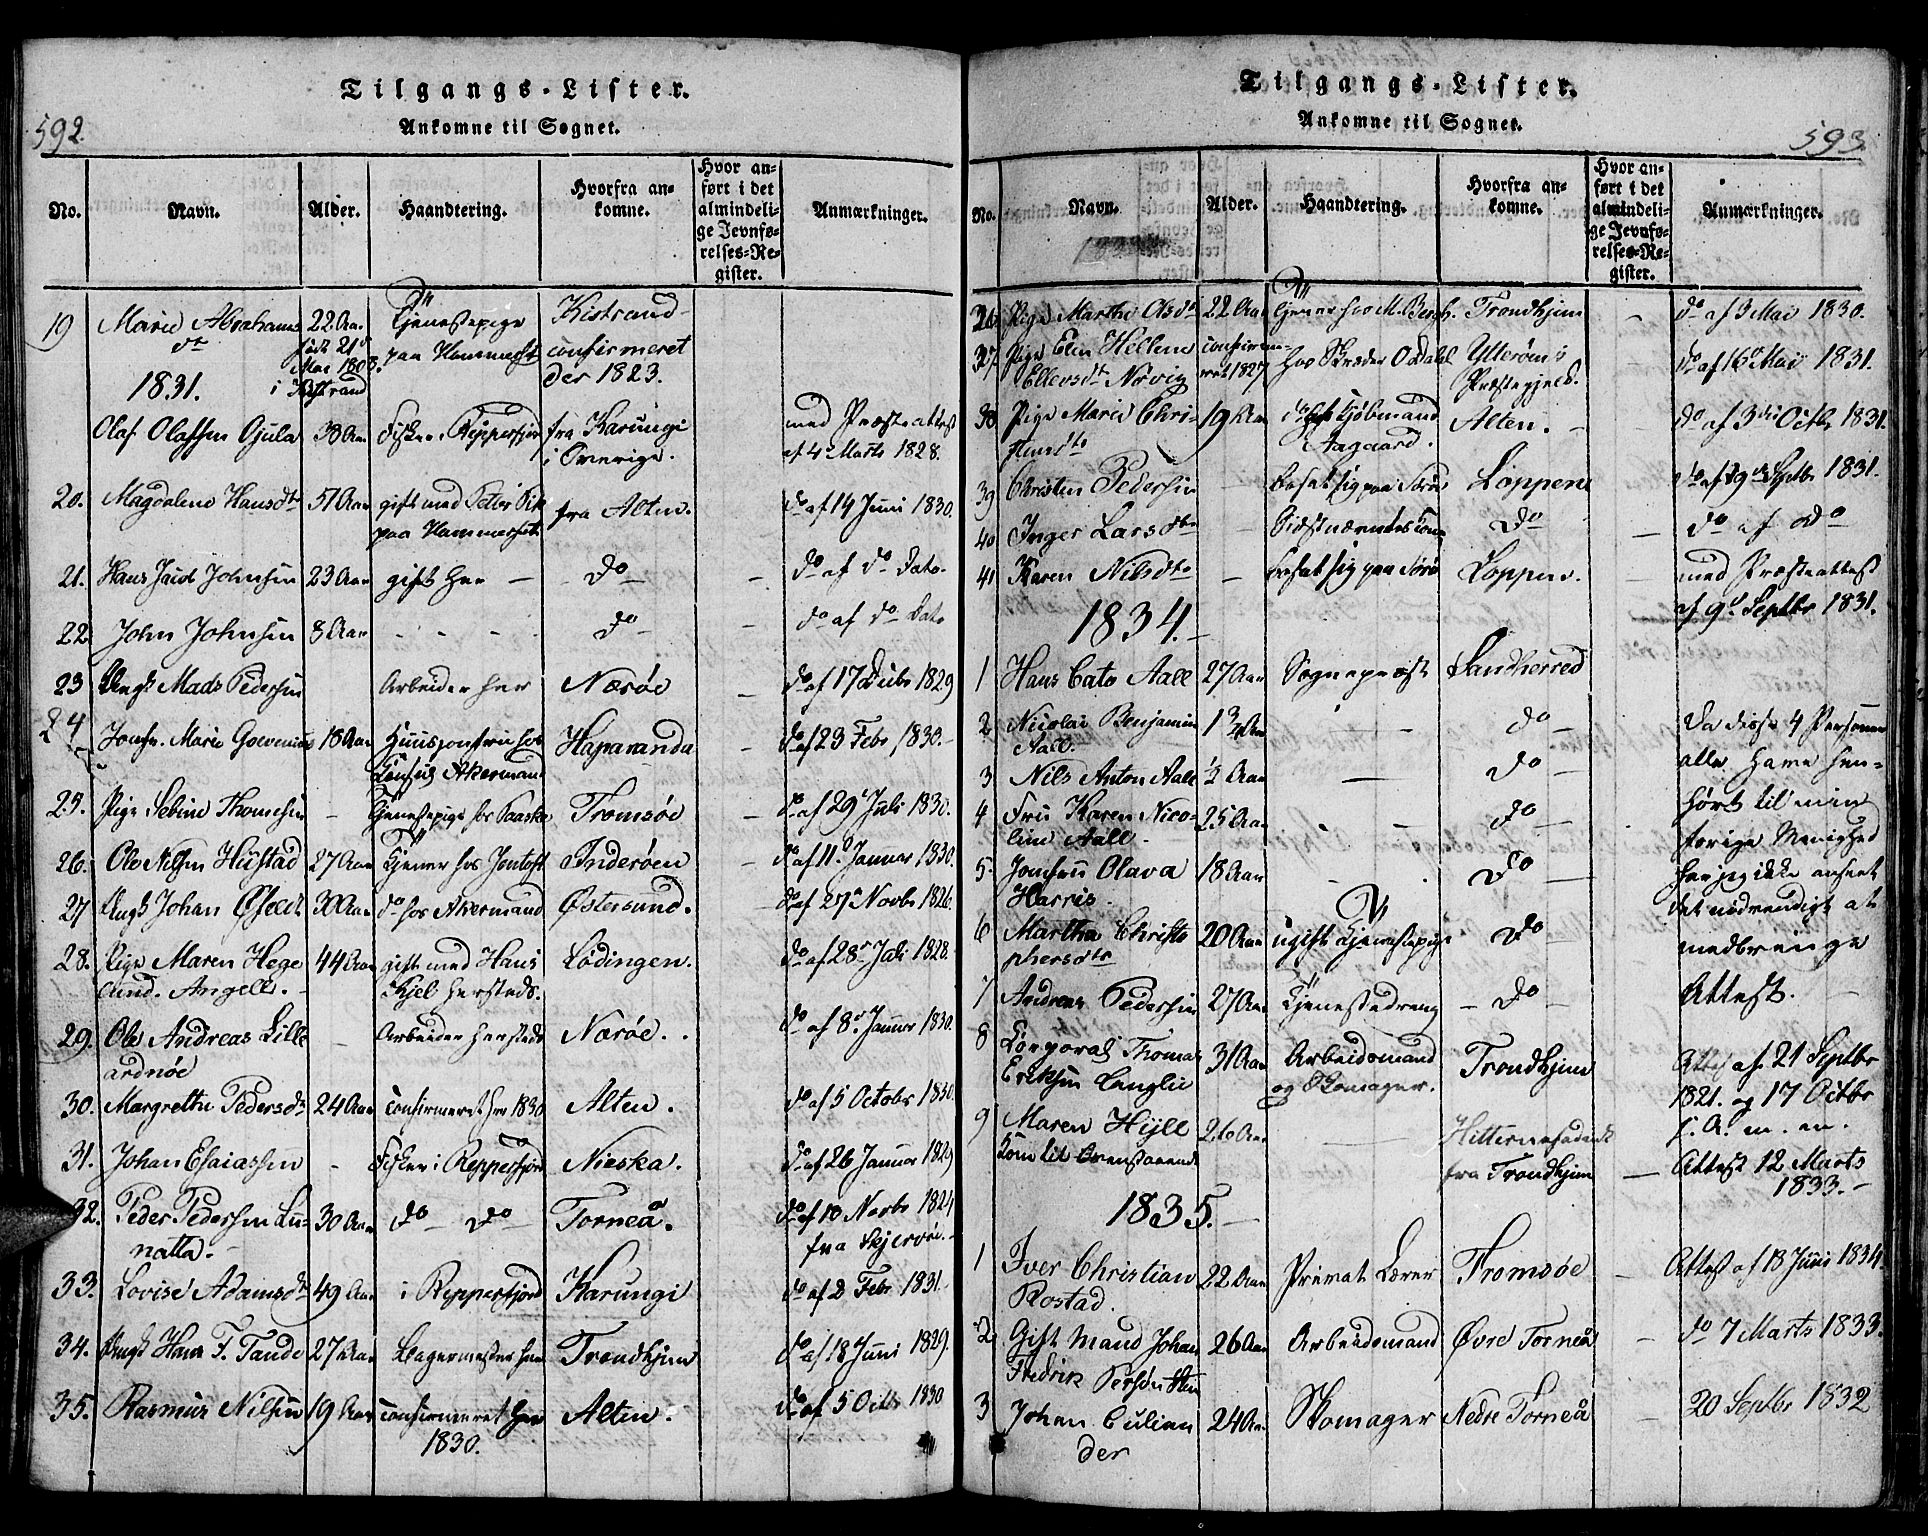 592.
Tilgangs-Lister.
Ankomne til Sognet.
No. Navn. Alder. Haandtering. Hvorfra ankomne. Hvor anført i det almindelige Jevnførelses-Register. Anmærkninger.
19 Marie Abrahams 22 Aar Tjenestepige Kistrand
dtr født 21de paa Hammerfest confirmeret
Mai 1803. der 1823.
1831. i Kistrand
Olaf Olafsen Gjula 38 Aar Fisker i Reppefjord fra Karungi med Præsteattest
i Sverige. af 4 Marts 1828.
20. Magdalene Hansdtr 51 Aar gift med Peter fra Alten. do af 14 Juni 1830.
paa Hammerfest
21. Hans Johnsen 23 Aar gift her do do af do Dato.
22 John Johnsen 8 Aar do do af do Dato
23 Ungk Mads Pedersen Arbeider her Nærøe do af 17 Decbr 1829
24 Jomfr. Marie Goevenius 18 Aar Huusjomfrue hos Haparanda do af 23 Febr 1830.
Consul Akermand
25. Pige Sebine Thomesen Tjenestepige hos Tromsøe do af 29 Juli 1830.
26. Ole Nilsen Hustad 27 Aar Tjener hos Jentoft Inderøen do af 11 Januar 1830.
27 Ungk Johan Øfeldt 30 Aar do hos Akermand Østersund. do af 27 Novbr 1826.
28. Pige Maren Hege 44 Aar gift med Hans Lødingen. do af 28 Juli 1828.
lund. Angell. Kjel hersteds.
29. Ole Andreas Lille Arbeider hersteds Nærøe. do af 8 Januar 1830.
ardnøe
30. Margrethe Pedersdtr 24 Aar confirmeret her 1830 Alten. do af 5 Octobr 1830.
31. Johan Esaiassen Fisker i Reppefjord Nieska. do af 26 Januar 1829
32. Peder Pedersen Lu- 30 Aar do do Torneå. do af 10 Novbr 1824
natta. fra Skjervøe.
33. Lovise Adamsdtr 49 Aar i Reppefjord Karungi do af 2 Febr 1831.
34. Ungk Hans F. Tande 27 Aar Bagermester her Trondhjem do af 18 Juni 1829.
35. Rasmus Nilsen 19 Aar confirmeret her Alten. do af 5 Octb 1830
1830.
593.
Tilgangs-Lister.
Ankomne til Sognet.
No. Navn. Alder. Haandtering. Hvorfra ankomne. Hvor anført i det almindelige Jevnførelses-Register. Anmærkninger.
36 Pige Marthe Olsdtr 22 Aar tjener hos M. Bergh. Trondhjem do af 3 Mai 1830.
37 Pige Elen Hellene confirme- hos Skræder Oxdahl Ytterøens do af 16 Mai 1831.
Ellevsdtr Nørvig ret 1827 Præstegjeld.
38 Pige Marie Chri- 19 Aar do hos Kjøbmand Alten. do af 3die Octbr 1831.
stensdtr Aagaard.
39 Christen Pedersen bosat sig paa Sørøe Loppen do af 9 Septbr 1831.
40 Inger Larsdtr Sidstnævntes Kone do do af do
41 Karen Nilsdtr bosat sig paa Sørø Loppen. med Præsteattest
af 9d Septbr 1831.
1834.
1 Hans Cato Aall 27 Aar Sognepræst Sandherred
2 Nicolai Benjamin 1 3/4 Aar do Da disse 4 Personer
Aall. alle have hen-
3 Nils Anton Aall 1/2 Aar do hørt til min
4 Fru Karen Nico- 25 Aar do forige Menighed
line Aall. har jeg ikke anseet
5. Jomfru Olava 18 Aar do det nødvendigt at
Harris.
6 Martha Christo 20 Aar ugift Tjenestepige do medbringe
phersdtr
7 Andreas Pedersen 27 Aar Tjenestedreng do Attest.
8 Corporal Thomas 31 Aar Arbeidsmand Trondhjem Attest af 21 Septbr
Eriksen Langlie og Skomager. 1821. og 17 Octbr
9 Maren Hjell 26 Aar Hitternesadent s. A. m. m.
Kone til Ovenstaaende fra Trondhjem Attest 12 Marts
1833.
1835.
1 Iver Christian 22 Aar Privat Lærer Tromsøe Attest af 13 Juni 1834.
Rostad.
2. Gift Mand Johan 26 Aar Arbeidsmand Øvre Torneå do 7 Marts 1833.
Fredrik Persøn
3 Johan Culian 24 Aar Skomager Nedre Torneå 20 Septbr 1832
der